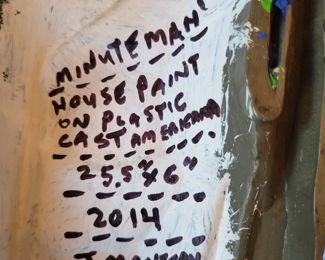 MINUTEMAN'
HOUSE PAINT
ON PLASTIC
CAST AMERICANA
25.5" x 6"
2014